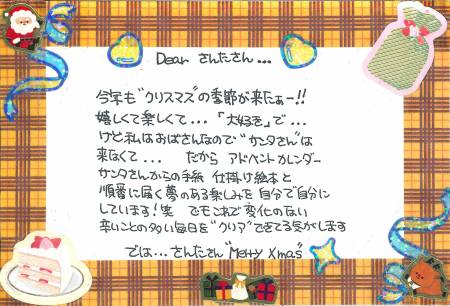 Dear さんたさん...
今年も"クリスマス"の季節が来たぁー!!
嬉しくて楽しくて...「大好き」で...
けど私はおばさんなので"サンタさん"は
来なくて... だから アドベントカレンダー
サンタさんからの手紙 仕掛け絵本と
順番に届く夢のある楽しみを 自分で自分に
しています!笑 でもこれで変化のない
辛いことの多い毎日を"クリア"できてる気がします
では... さんたさん"Merry Xmas"